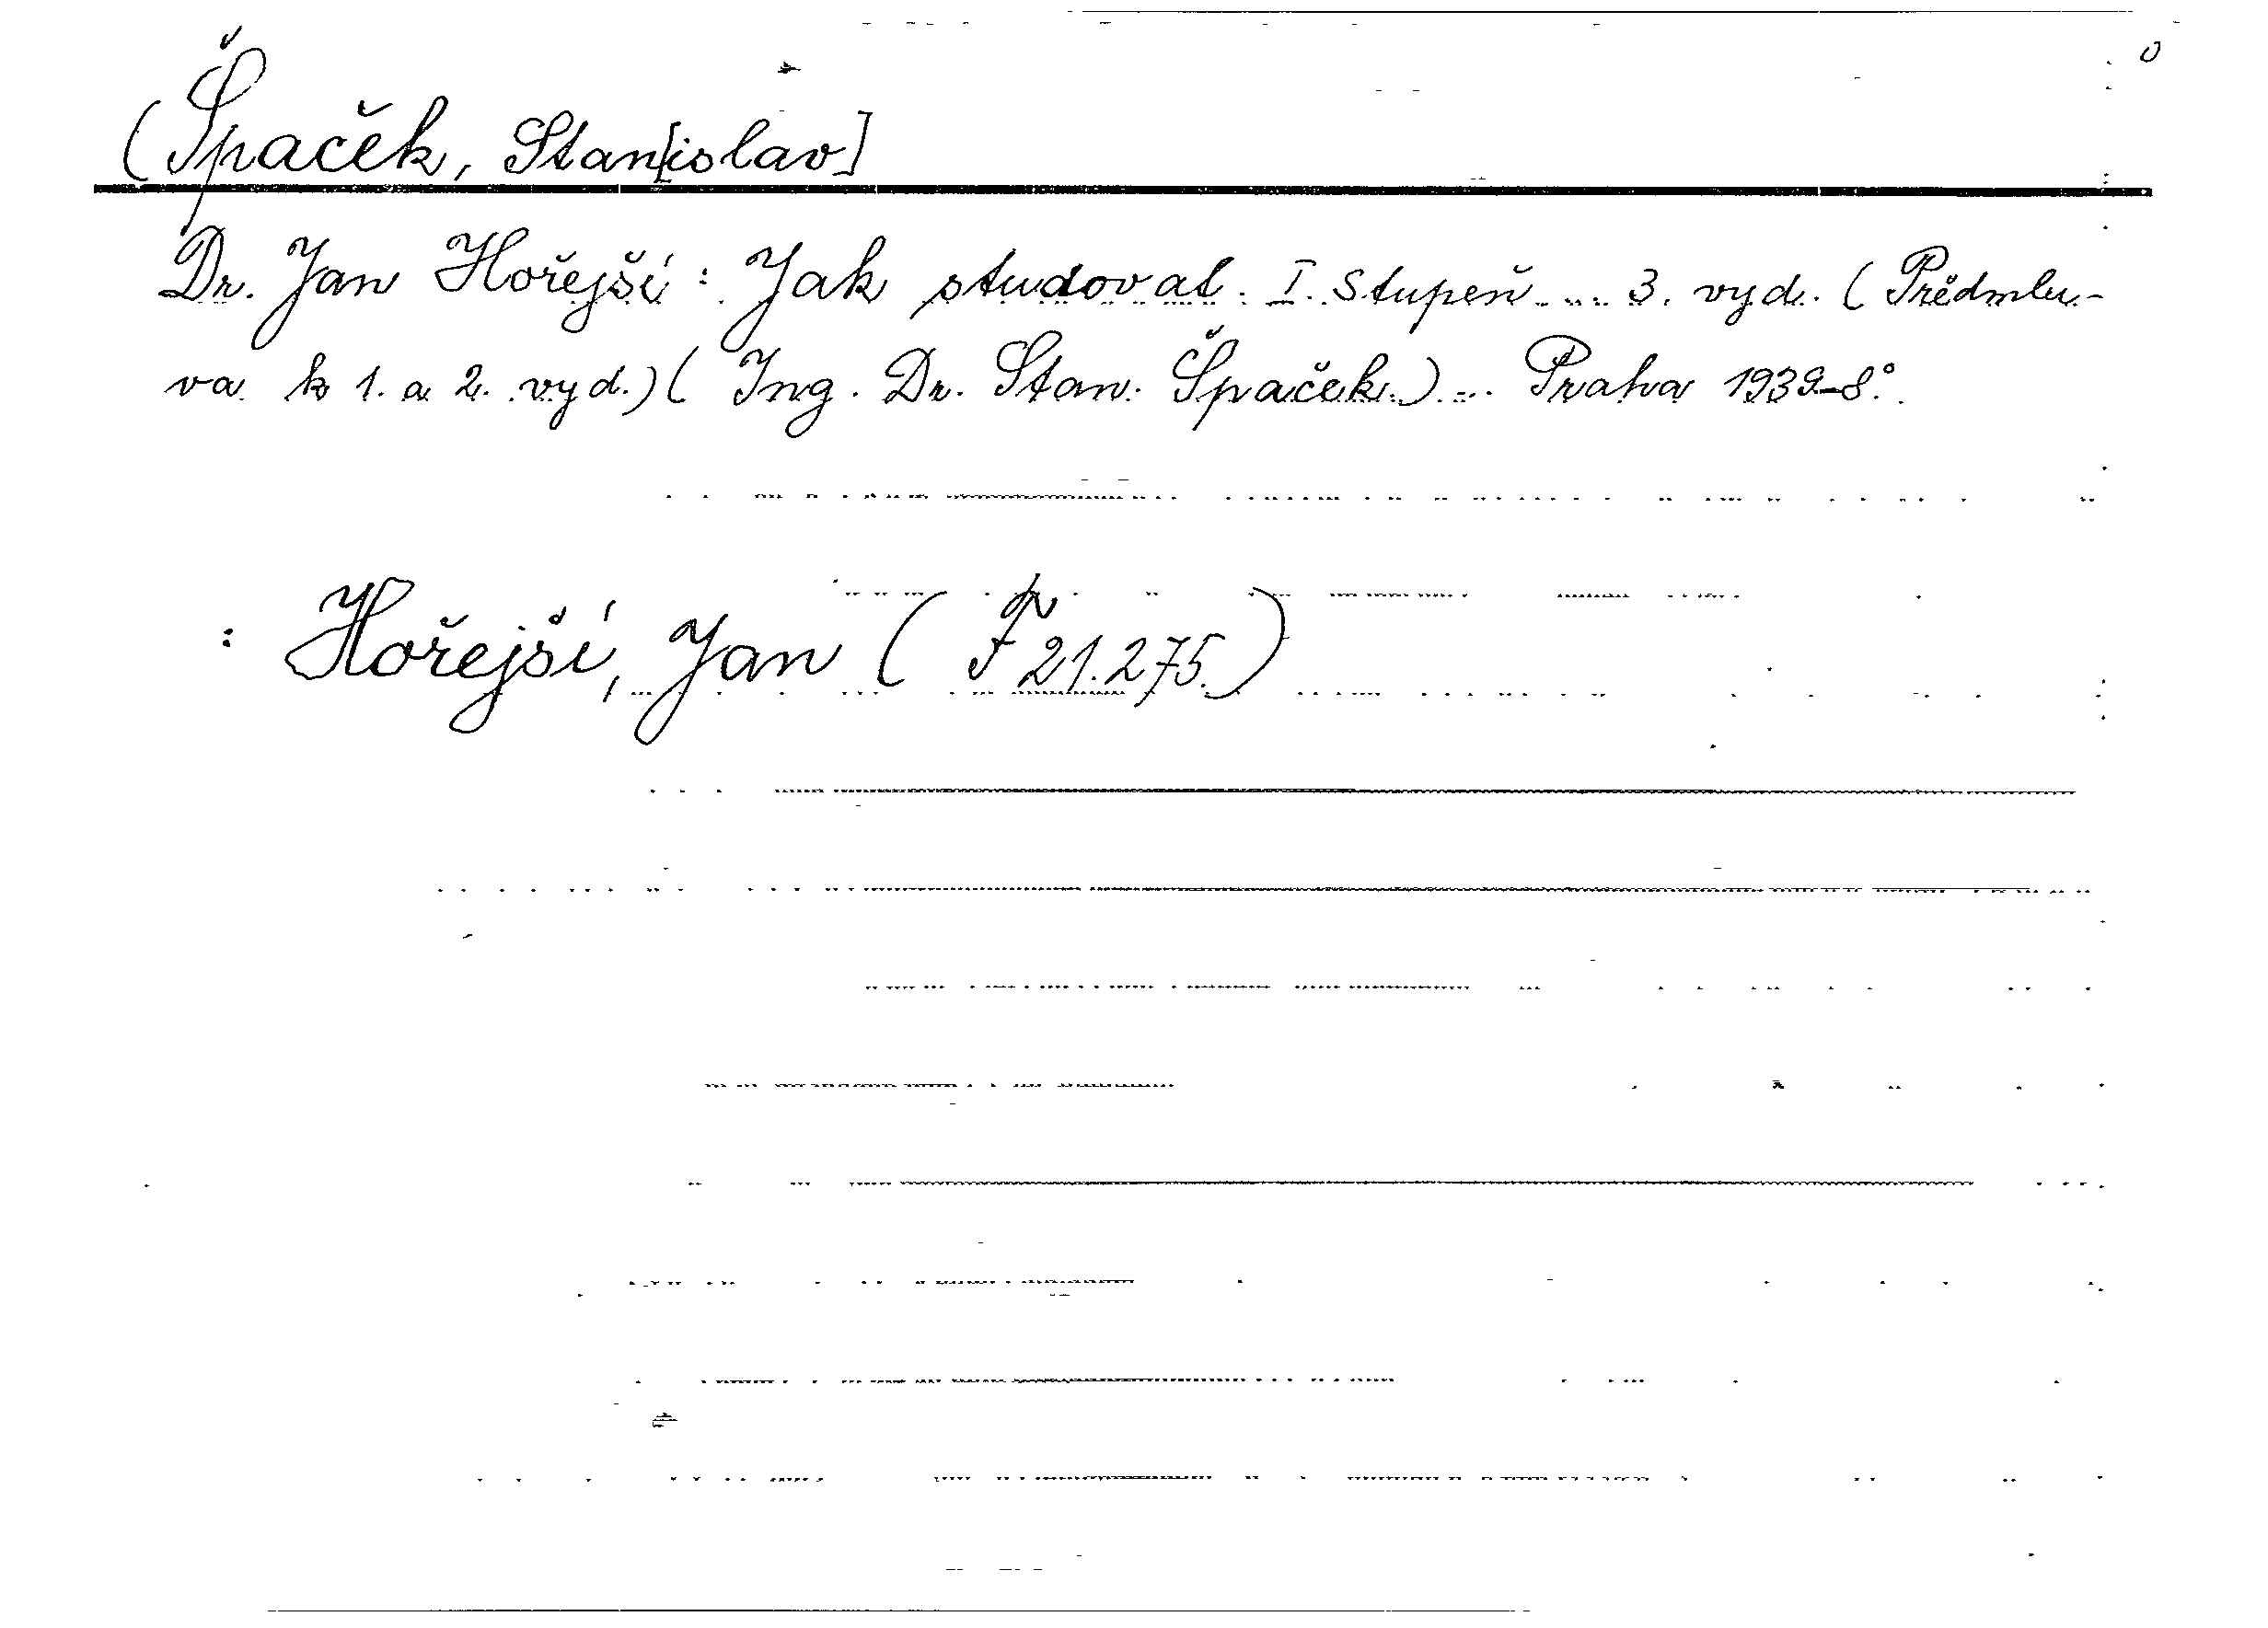 (Špaček, Stan[islav]
Dr. Jan Hořejší: Jak studovat. I. stupeň ... 3. vyd. (Předmlu-
va k 1. a 2. vyd.) (Ing. Dr. Stan. Špaček.) ... Praha 1939-8°.
: Hořejší, Jan (F 21.275.)